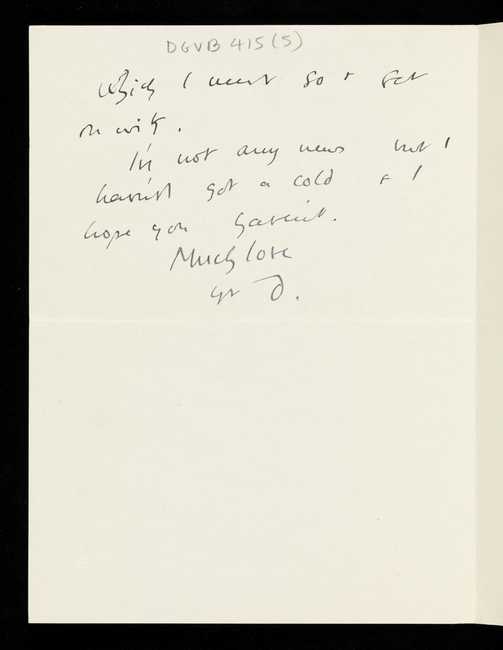 DGVB 415 (5)
which I must go & get
on with.
I'v not any news but I
haven't got a cold & I
hope you havent.
Much love
yr D.